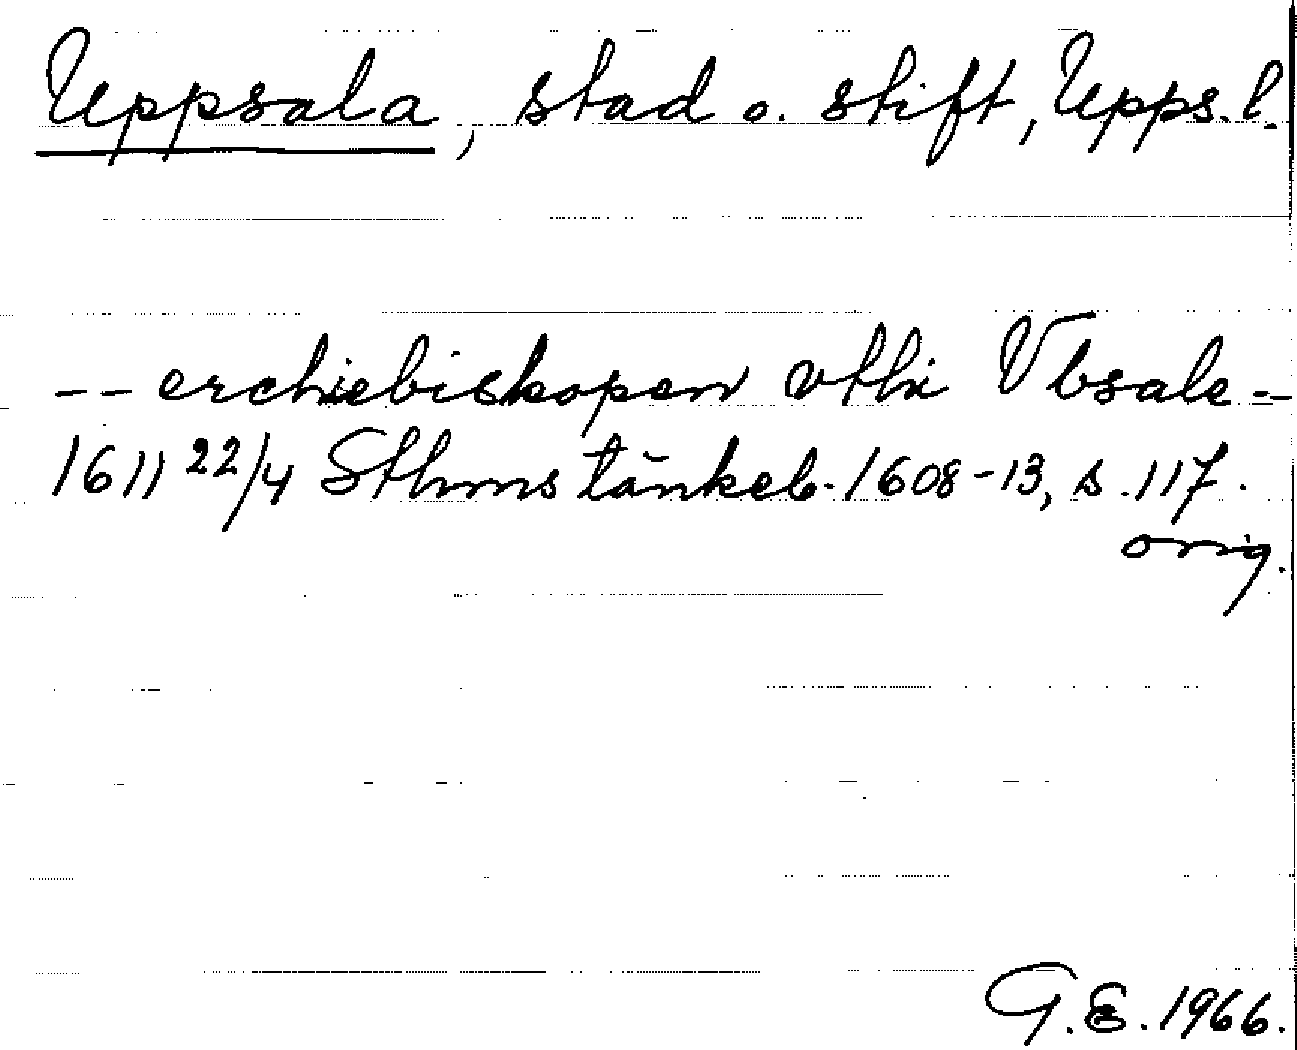 Uppsala, stad o. stift, Upps. l.
-- erchiebiskopen vthi Vbsale --
1611 22/4 Sthms tänkeb. 1608-13, s. 117.
orig.
G.E. 1966.